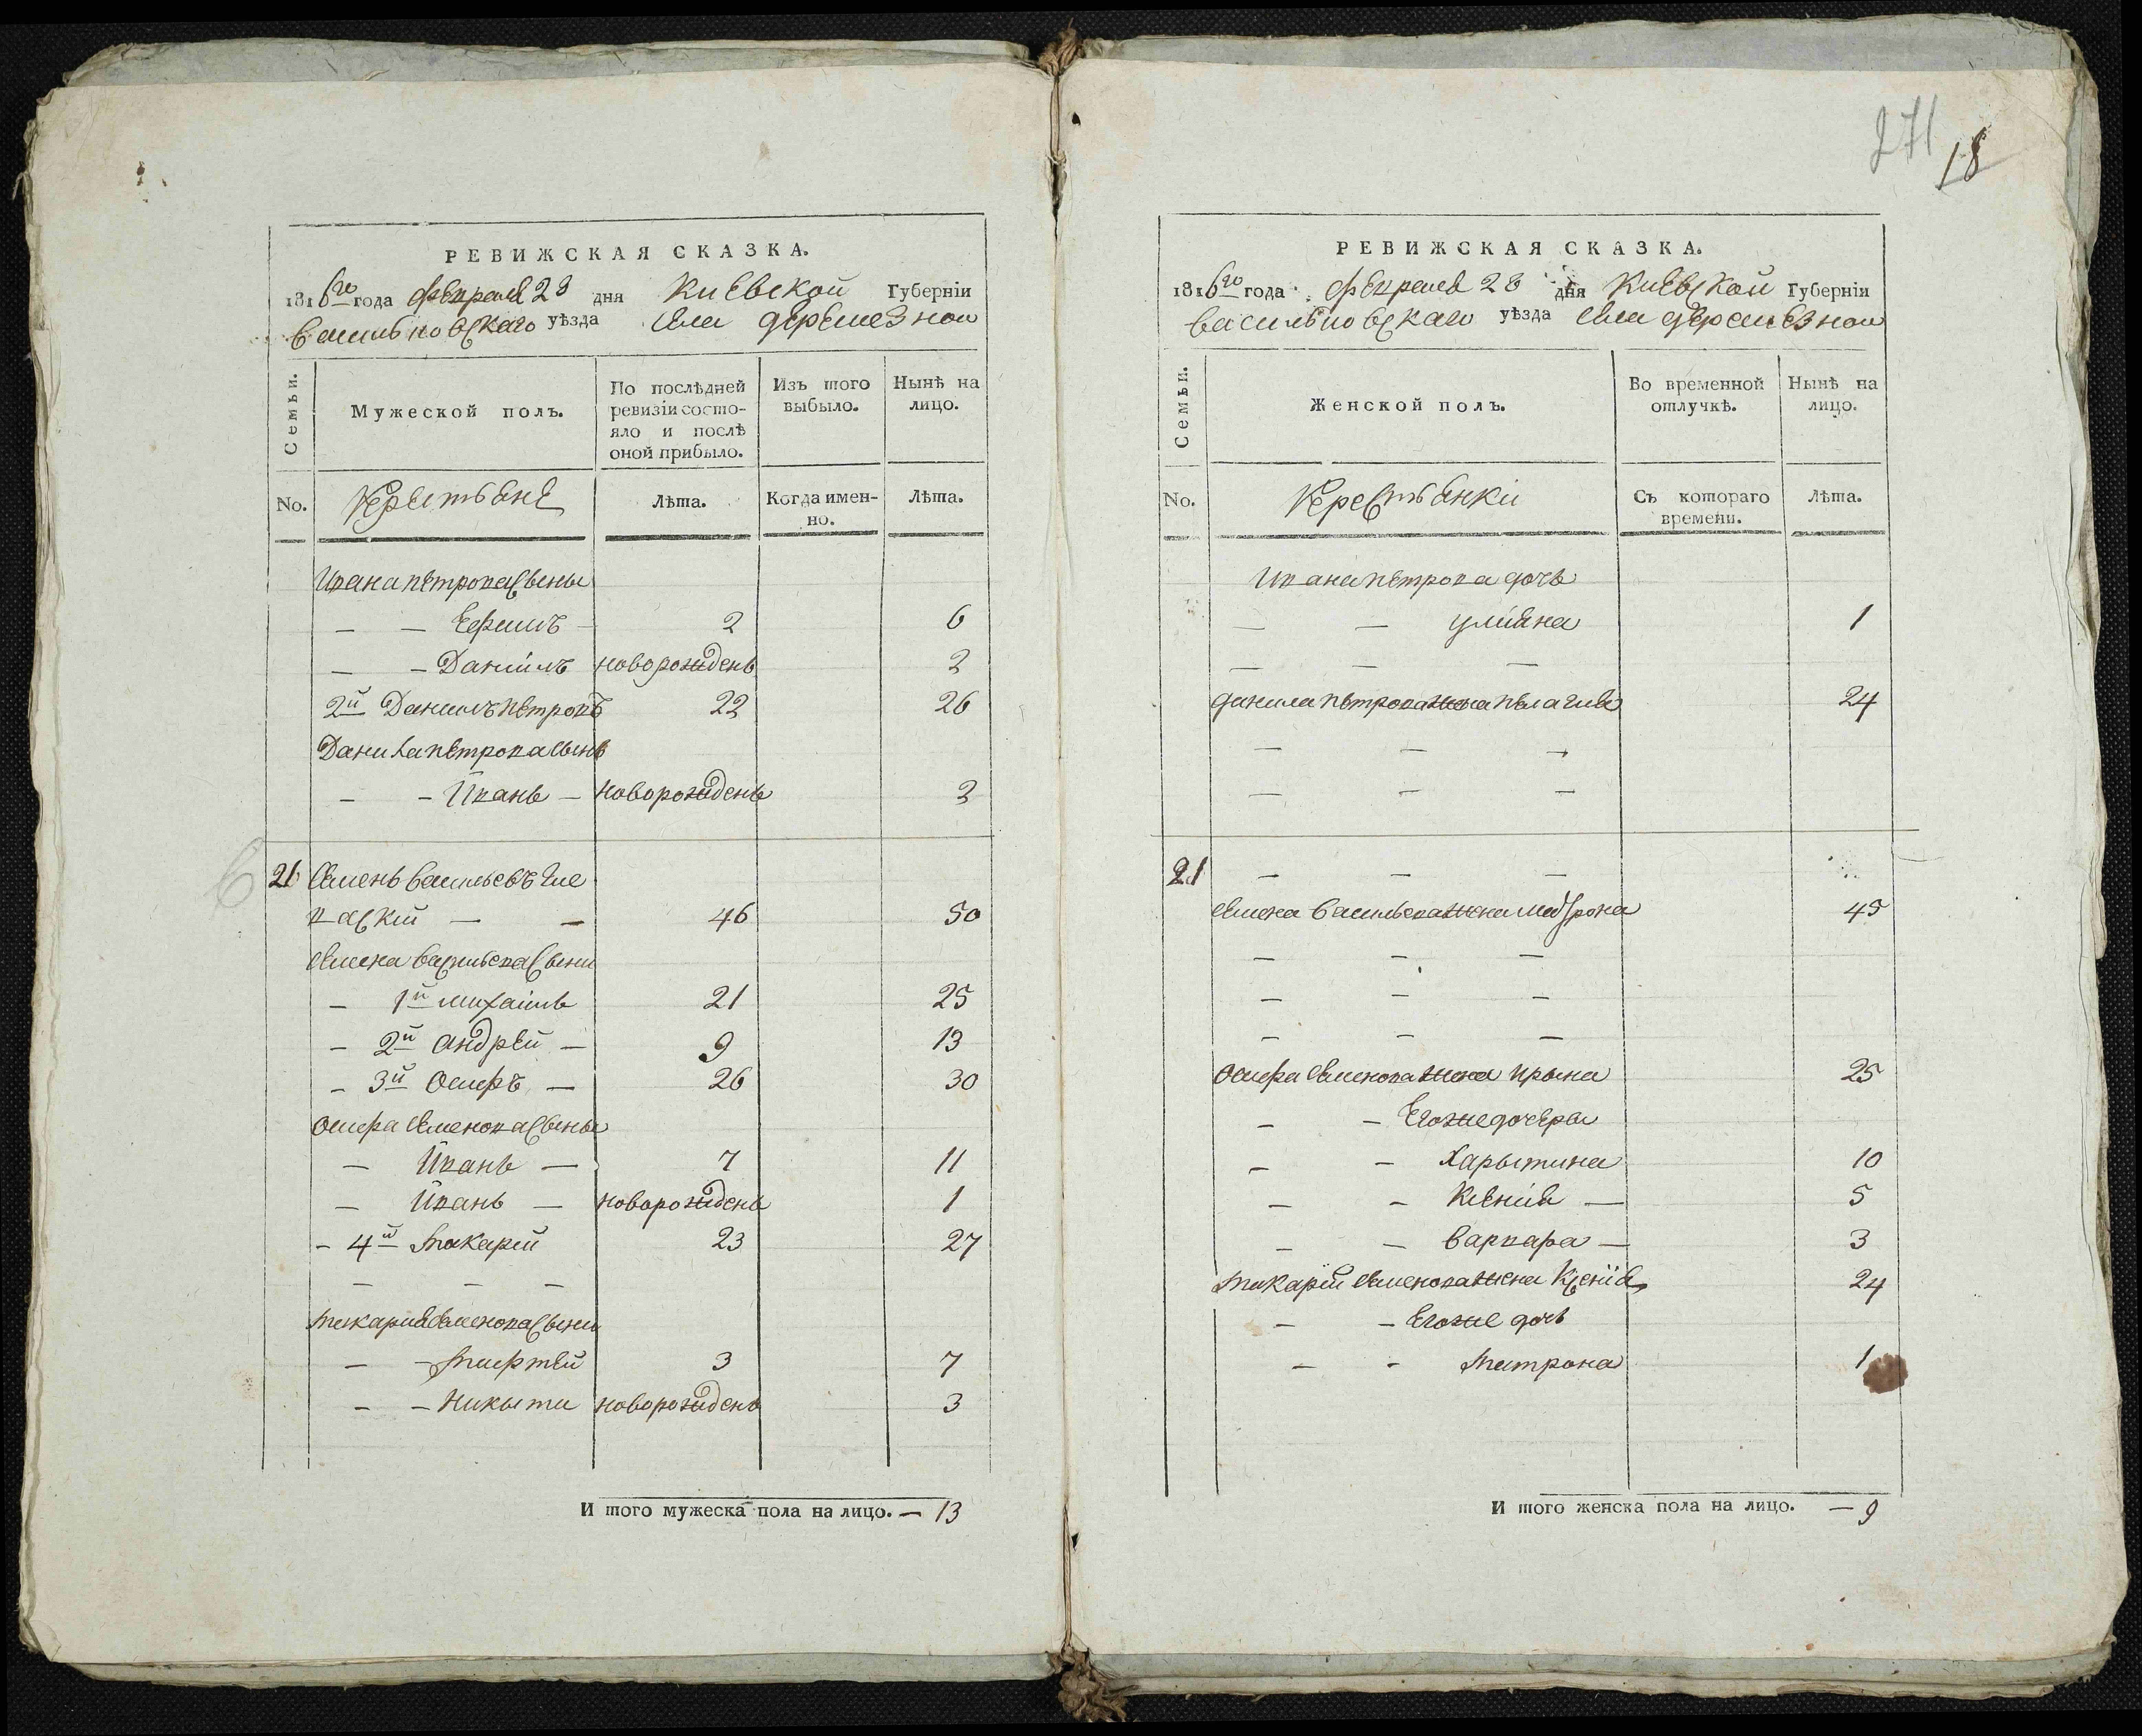 РЕВИЖСКАЯ СКАЗКА.
1816го года февраля 28 дня Киевской Губернiи
васильковскаго уѣзда села деремезнои
Семьи.
Мужеской полъ.
По послѣдней ревизiи состояло и послѣ оной прибыло.
Изъ того выбыло.
Нынѣ на лицо.
No. Крестьяне Лѣта. Когда именно. Лѣта.
Ивана петрова сыны
— — Ефимъ 2 6
— — Данiилъ новорожденъ 2
2й Данилъ петровъ 22 26
Данила петрова сынъ
— — Иванъ — новорожденъ 3
21 Семенъ васильевъ
— — 46 50
семена васильева сыны
— 1й михаiилъ 21 25
— 2й андрей — 9 13
— 3й Осифъ — 26 30
Осифа семенова сыны
— Иванъ — 7 11
— Иванъ — новорожденъ 1
— 4й макарiй 23 27
— — —
макария семенова сыны
— — 3 7
— — Никыта новорожденъ 3
И того мужеска пола на лицо. — 13
271
18
РЕВИЖСКАЯ СКАЗКА.
1816го года февраля 28 дня Киевской Губернiи
васильковскаго уѣзда села деремезнои
Семьи.
Женской полъ.
Во временной отлучкѣ.
Нынѣ на лицо.
No. Крестьянкi Съ котораго времени. Лѣта.
Ивана петрова дочь
— — улiяна 1
— — —
данила петрова жена пелагия 24
— — —
— — —
21 — — —
семена васильева жена матрона 45
— — —
— — —
— — —
осифа семенова жена ирына 25
— — Егоже дочеры
— — Харытина 10
— — Ксенiя — 5
— — варвара — 3
макарiй семенова жена Ксенiя 24
— — Егоже дочь
— — матрона 1
И того женска пола на лицо. — 9